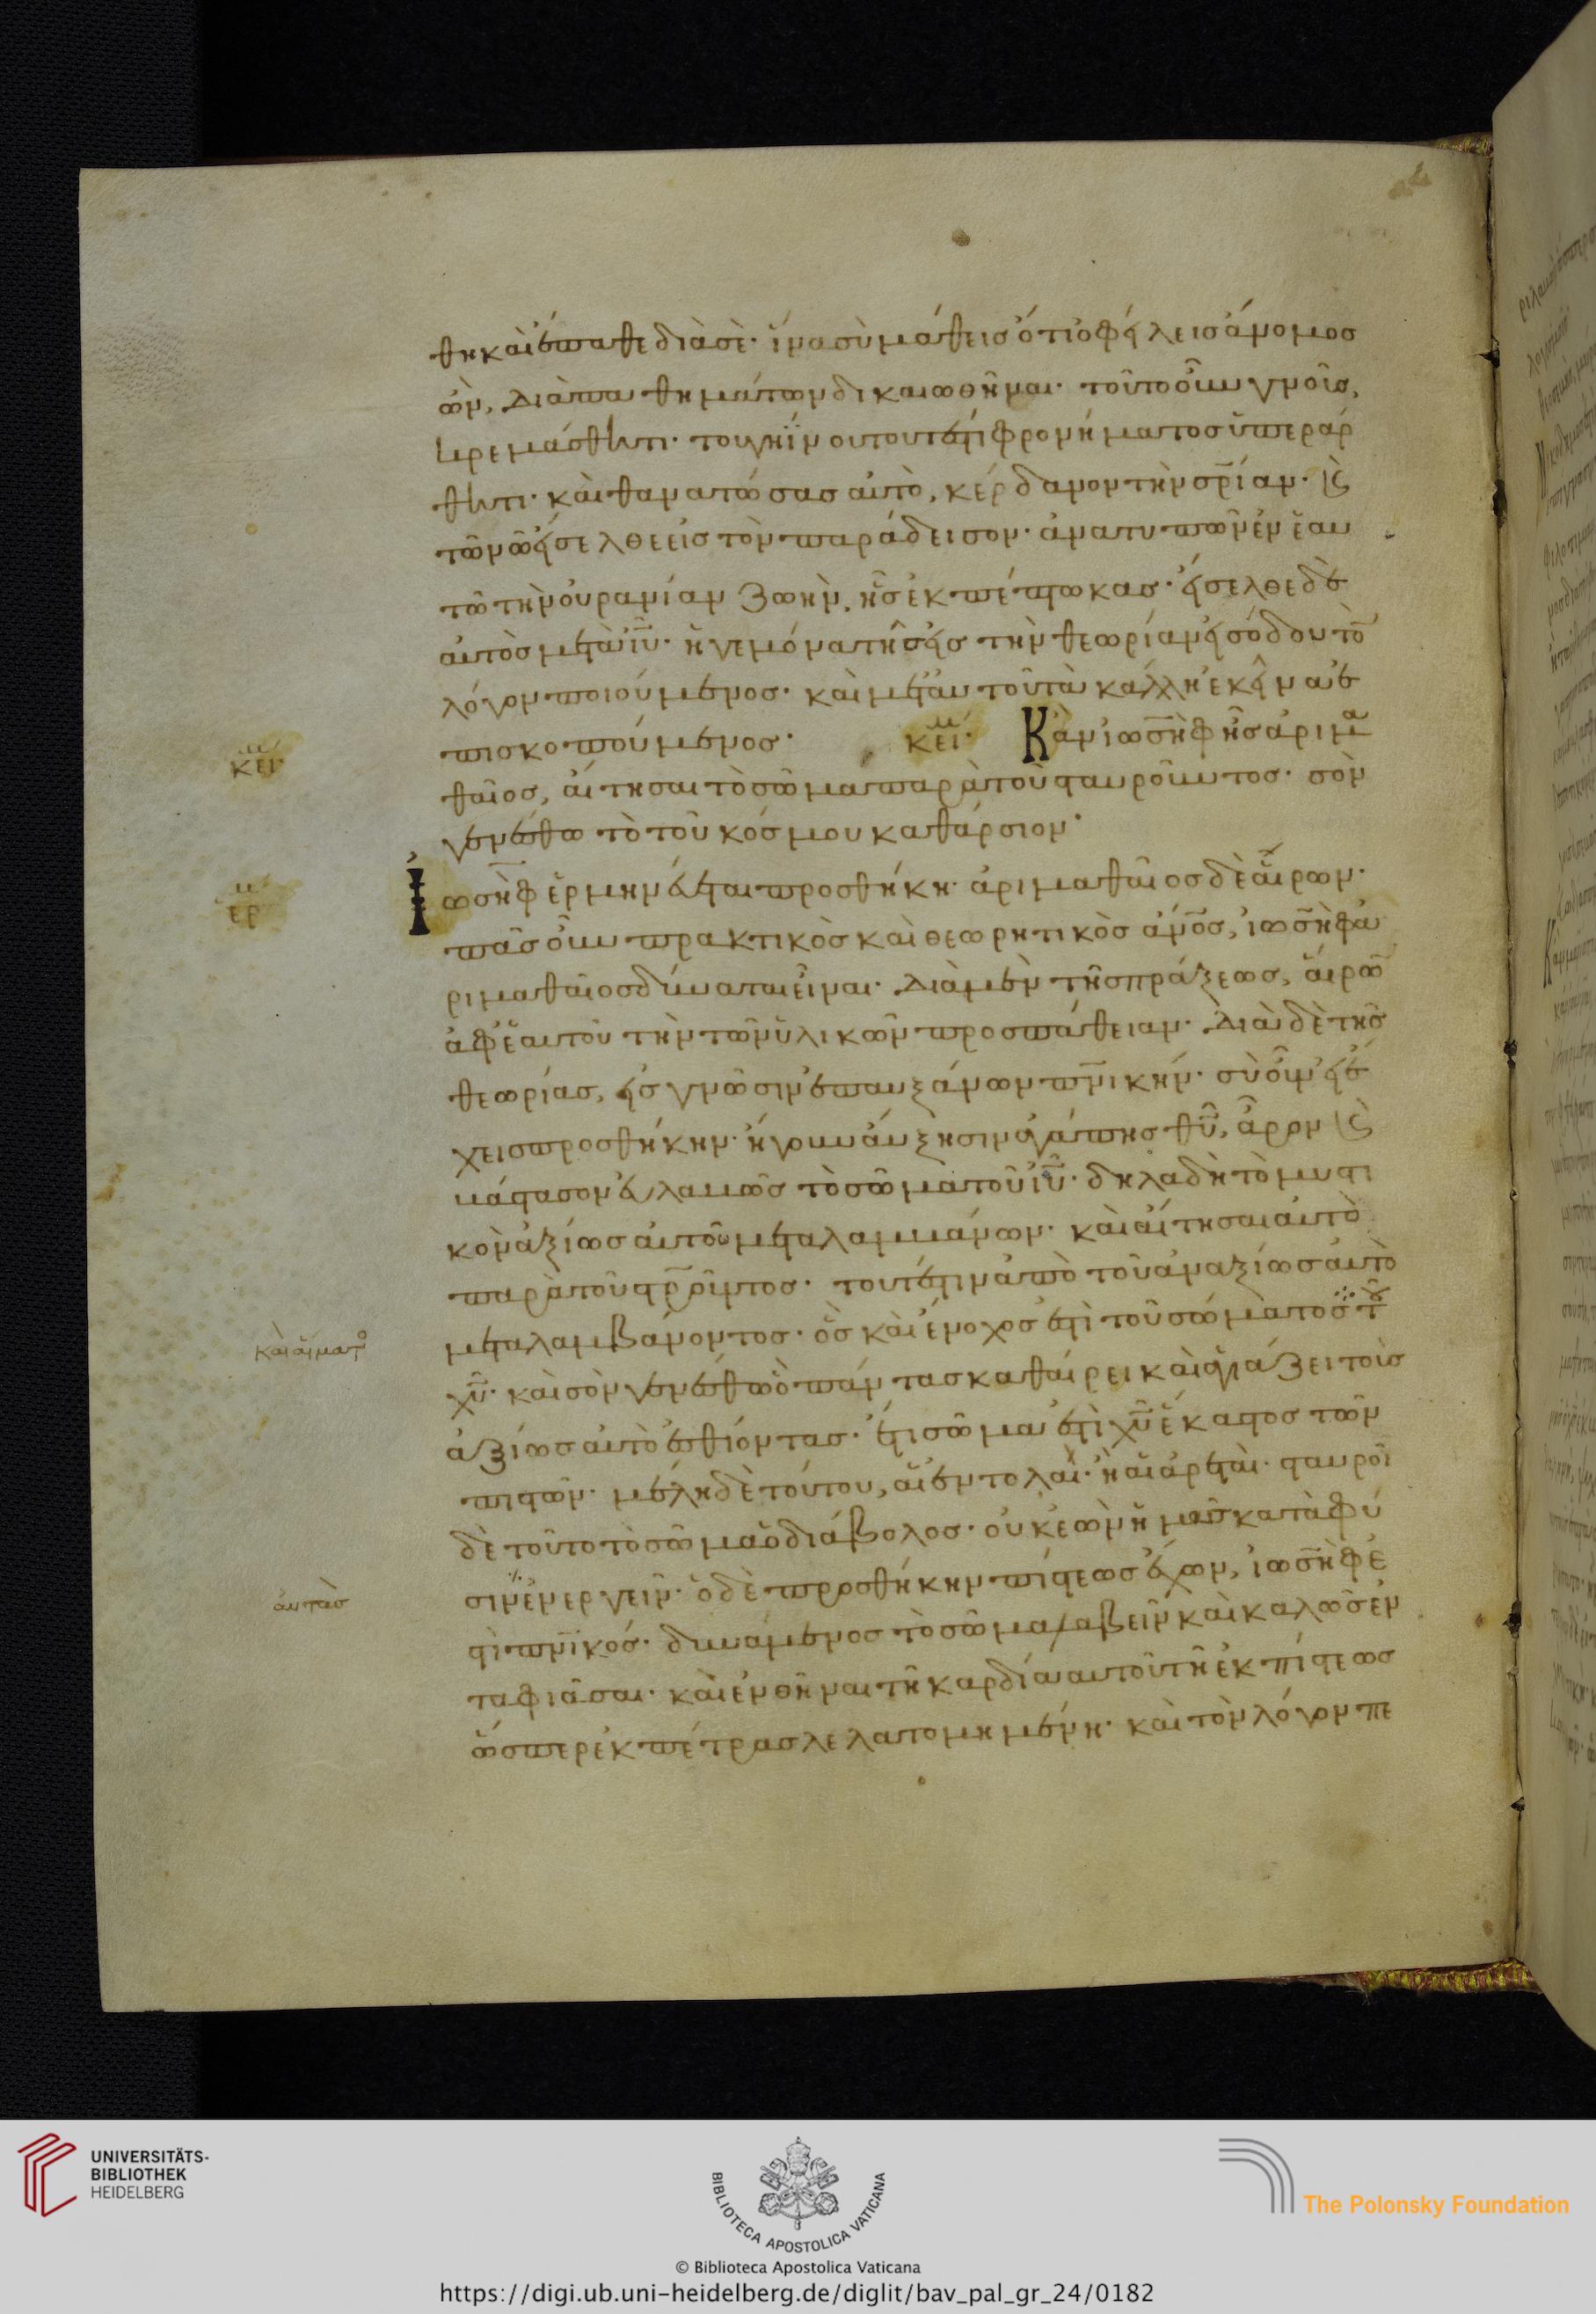 θη καὶ ἔπαθε διὰ σὲ· ἵνα σὺ μάθεις ὅτι ὀφείλεις ἄνομος
ὢν, διὰ παθημάτων δικαιωθῆναι· τοῦτο οὖν γνοῖς,
κρεμάσθητι· τοῦ γηΐνου τουτέστι φρονήματος ὑπεράρ
θητι· καὶ θανατώσας αὐτὸ, κέρδανον τὴν σρίαν· καὶ
τῶν ὧ εἴσελθε εἰς τὸν παράδεισον· ἀνατυπῶν ἐν ἑαυ
τῶ τὴν οὐρανίαν ζωὴν, ἧς ἐκπέπτωκας· εἴσελθε δὲ
αὐτὸς μετὰ ἰῦ· ἡγεμόνα τῆς εἰς τὴν θεωρίαν εἰσόδου τὸ
λόγον ποιούμενος· καὶ μετ' αὐτοῦ τὰ κάλλη ἐκεῖνα ἐ
πισκοπούμενος· κεί· Κἂν ἰωσὴφ ἦς ἀριμα
θαῖος, αἴτησαι τὸ σῶμα παρὰ τοῦ σταυροῦντος· σὸν
γενέσθω τὸ τοῦ κόσμου καθάρσιον·
κεί·
Ἰωσὴφ ἑρμηνεύεται προσθήκη· ἀριμαθαῖος δὲ αἴρων·
ἑρ
πᾶς οὖν πρακτικὸς καὶ θεωρητικὸς ἀνος, ἰωσὴφ ἀ
ριμαθαῖος δύναται εἶναι· διὰ μὲν τῆς πράξεως, αἴρω
ἀφ' ἑαυτοῦ τὴν τῶν ὑλικῶν προσπάθειαν· διὰ δὲ τῆς
θεωρίας, εἰς γνῶσιν ἐπαυξάνων πνικήν· σὺ οὖν εἰ ἔ
χεις προσθήκην· ἤγουν αὔξησιν ἀγάπης θῦ, ἆρον καὶ
βάστασον εὐλαβῶς τὸ σῶμα τοῦ ἰῦ· δηλαδὴ τὸ μυστι
κὸν ἀξίως αὐτοῦ μεταλαμβάνων· καὶ αἴτησαι αὐτὸ
παρὰ τοῦ στροῦντος· τουτέστιν ἀπὸ τοῦ ἀναξίως αὐτὸ
μεταλαμβάνοντος· ὃς καὶ ἔνοχος ἐστὶ τοῦ σώματος τοῦ
καὶ αἵματο
χῦ· καὶ σὸν γενέσθω ὃ πάντας καθαίρει καὶ ἁγιάζει τοὺς
ἀξίως αὐτὸ ἐσθίοντας· ἔτι σῶμα ἐστὶ χῦ ἕκαστος τῶν
πιστῶν· μέλη δὲ τούτου, αἱ ἐντολαὶ· ἢ αἱ ἀρεταὶ· σταυροῖ
δὲ τοῦτο τὸ σῶμα ὁ διάβολος· οὐκ ἐῶν ἡμᾶς κατὰ φύ
σιν ἐνεργεῖν· ὁ δὲ προσθήκην πίστεως ἔχων, ἰωσὴφ ἐ
αὐτὰς
στὶ πνικός· δυνάμενος τὸ σῶμα λαβεῖν καὶ καλῶς ἐν
ταφιᾶσαι· καὶ ἐνθῆναι τῆ καρδία αὐτοῦ τῆ ἐκ πίστεως
ὥσπερ ἐκ πέτρας λελατομημένη· καὶ τὸν λόγον πε
UNIVERSITÄTS-
BIBLIOTHEK
HEIDELBERG
BIBLIOTECA APOSTOLICA VATICANA
The Polonsky Foundation
© Biblioteca Apostolica Vaticana
https://digi.ub.uni-heidelberg.de/diglit/bav_pal_gr_24/0182